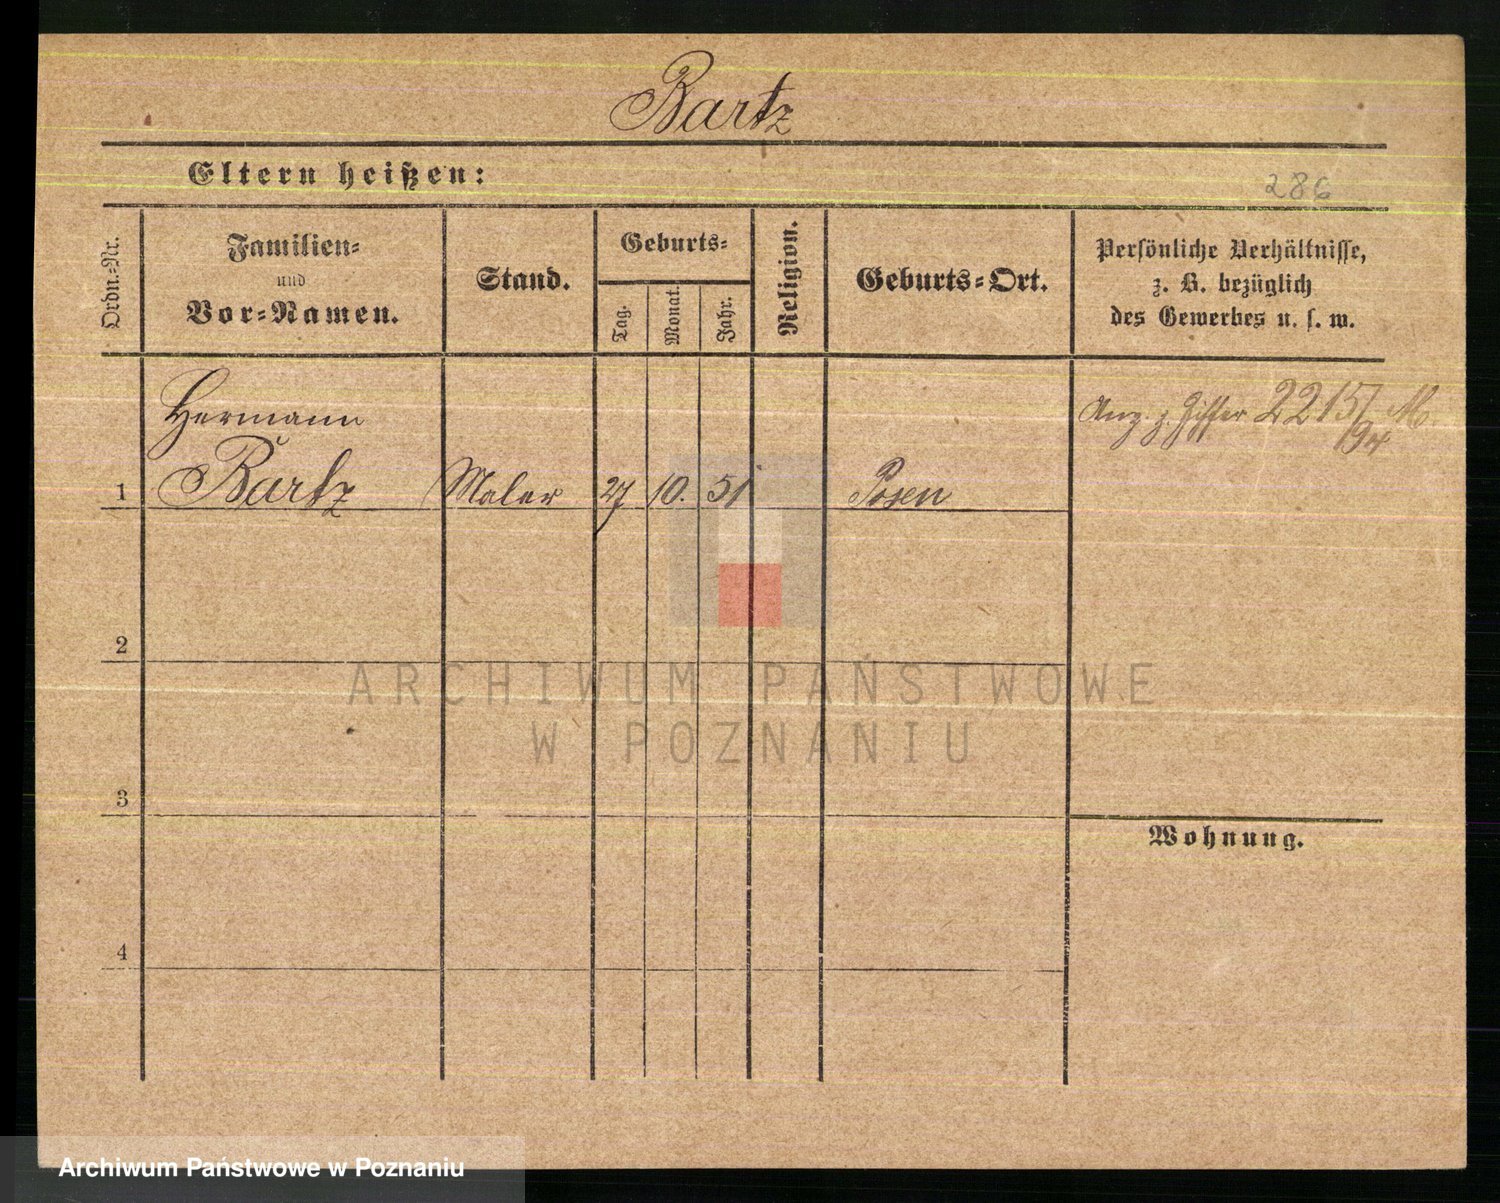 Bartz
Eltern heißen:
286
Ordn.-Nr.
Familien-
und
Vor-Namen.
Stand.
Geburts-
Tag.
Monat.
Jahr.
Religion.
Geburts-Ort.
Persönliche Verhältnisse,
z. B. bezüglich
des Gewerbes u. s. w.
Hermann
1 Bartz Maler 27 10. 51 Posen
Anz. z. Ziffer 2215/94 M.
2
3
4
Wohnung.
ARCHIWUM PAŃSTWOWE
W POZNANIU
Archiwum Państwowe w Poznaniu